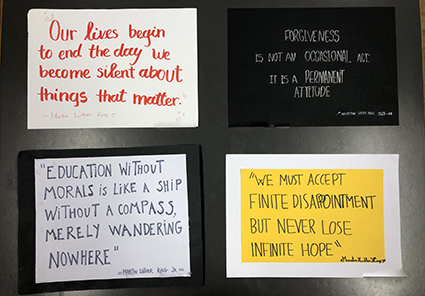 "Our lives begin
to end the day we
become silent about
things that matter."
FORGIVENESS
IS NOT AN OCCASIONAL ACT.
IT IS A PERMANENT
ATTITUDE
"EDUCATION WITHOUT
MORALS is LIKE A SHIP
WITHOUT A COMPASS,
MERELY WANDERING
NOWHERE"
—MARTIN LUTHER KING JR.
"WE MUST ACCEPT
FINITE DISAPPOINTMENT
BUT NEVER LOSE
INFINITE HOPE"